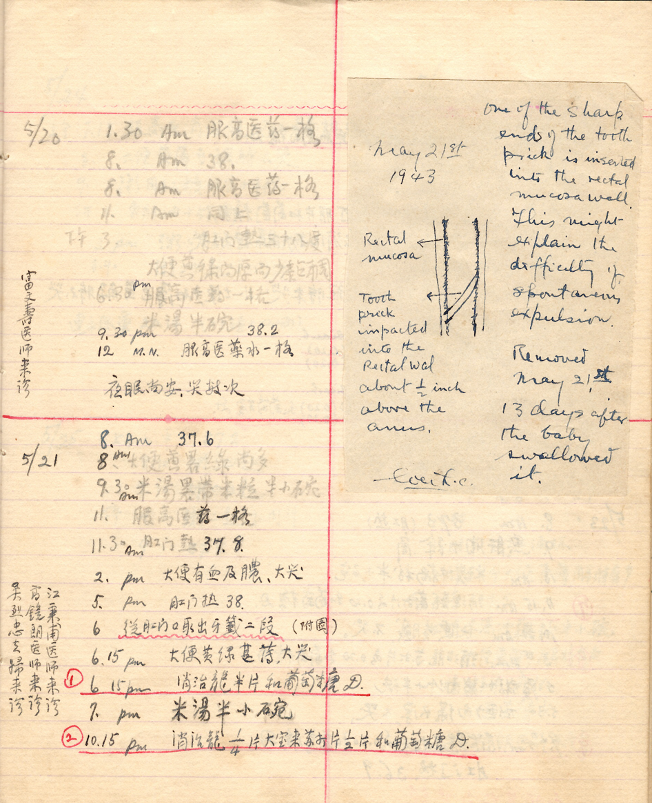 5/20
1.30 Am 服高医药一格
8. Am 38.
8. Am 服高医药一格
Am 同上
3 肛门熱三十八度
大便黄綠
6.30 pm 服高医药一格
米湯半碗
9.30 pm 38.2
12 M.N. 服高医藥水一格
夜眠尚安. 哭数次
富文壽医师来诊
5/21
8. Am 37.6
8 Am 大便黄署綠
9.30 Am 米湯果带米粒半小碗
11. 服高医药一格
11.30 Am 肛门熱 37.8.
2. pm 大便有血及膿、大哭
5. pm 肛门热 38.
6 從肛门口取出牙籤二段 (附图)
6.15 pm 大便黄绿甚薄、大哭
① 6.15 pm 消治龍半片和葡萄糖D.
7. pm 米湯半小碗
② 10.15 pm 消治龍 1/4 片大宝来苏打片 片和葡萄糖D.
江兼甫医师来诊
高鏡朗医师来诊
吴 忠 来诊
May 21st
1943
Rectal
mucosa
Tooth
prick
impacted
into the
Rectal Wal
about 1/2 inch
above the
anus.
one of the shark
ends of the tooth
prick is inserted
into the rectal
mucosa wall.
This might
explain the
difficulty of
spontaneous
expulsion.
Removed
May 21.st
13 days after
the baby
swallowed
it.